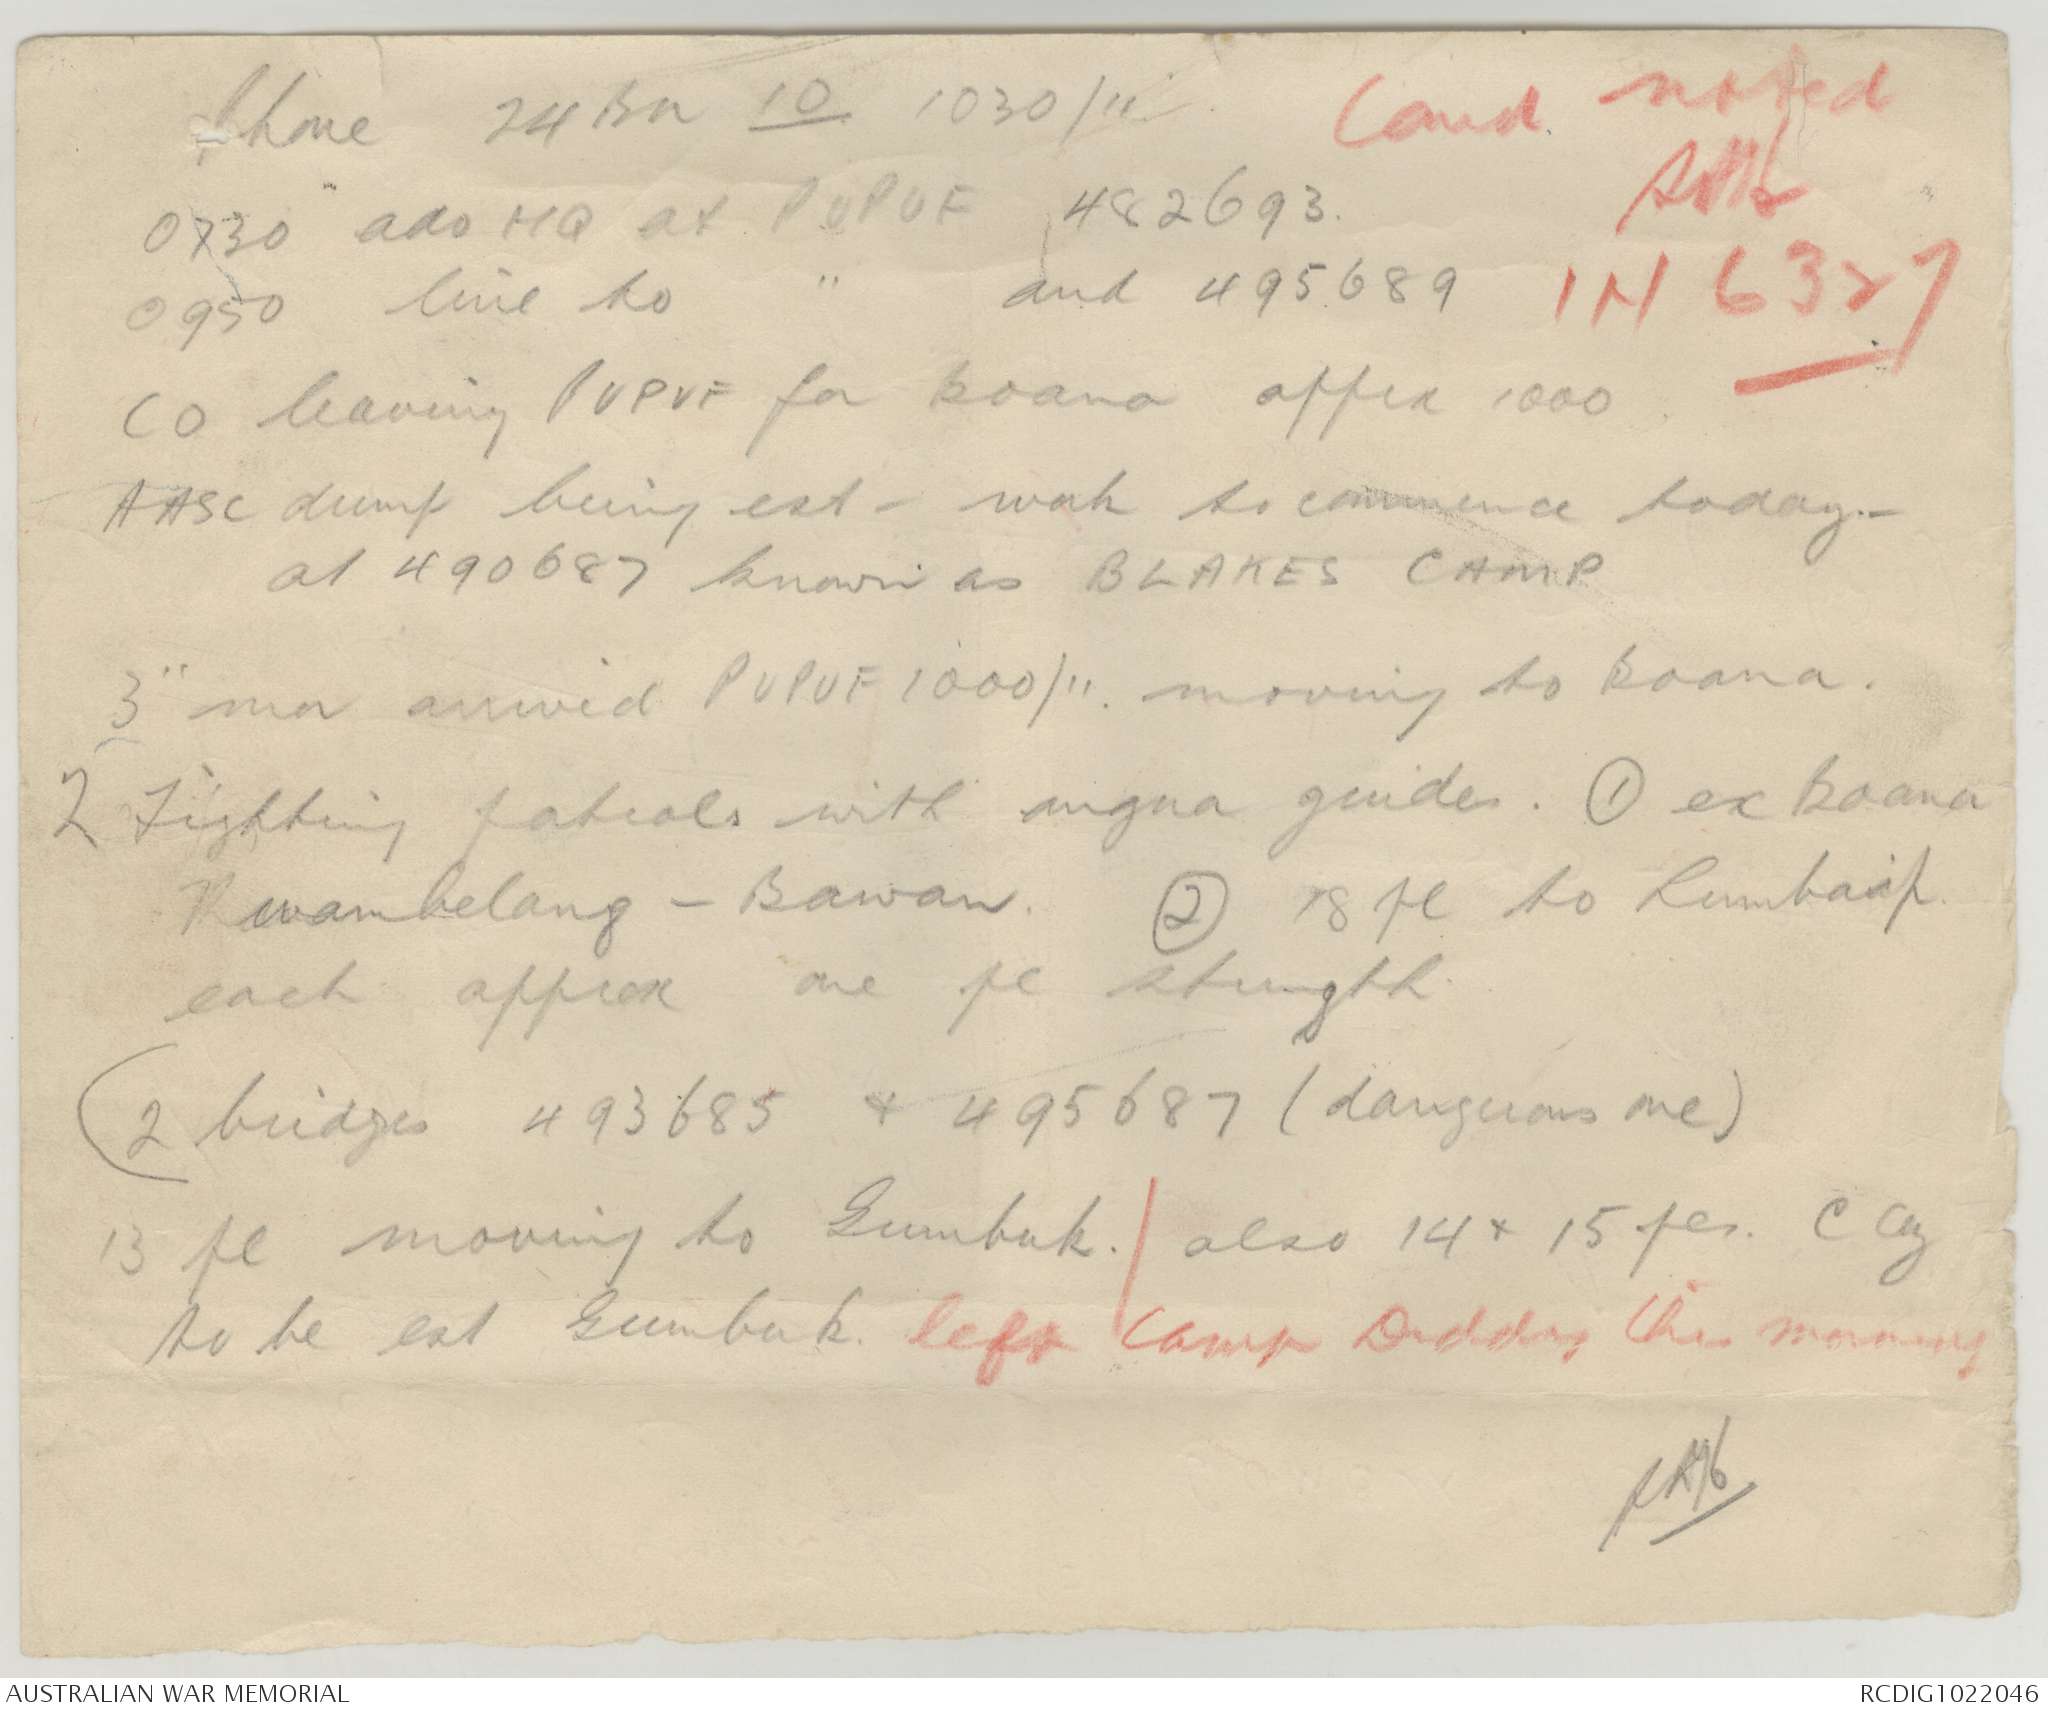 Phone 24 Bn IO 1030/11.
Comd noted
0730 adv HQ at PUPUF 482693.
0950 line to " and 495689
IN 6327
CO leaving PUPUF for Boana approx 1000
AASC dump being est - work to commence today -
at 490687 known as BLAKES CAMP
3" mor arrived PUPUF 1000/11. moving to Boana.
2 Fighting patrols with angau guides. ① ex Boana
Kwambelang - Bawan. ② 18 pl to Lumbaip.
each approx one pl strength.
(2 bridges 493685 + 495687 (dangerous one)
13 pl moving to Gumbuk. / also 14 + 15 pls. C Coy
to be est Gumbuk. left Camp Diddy this morning
AUSTRALIAN WAR MEMORIAL
RCDIG1022046